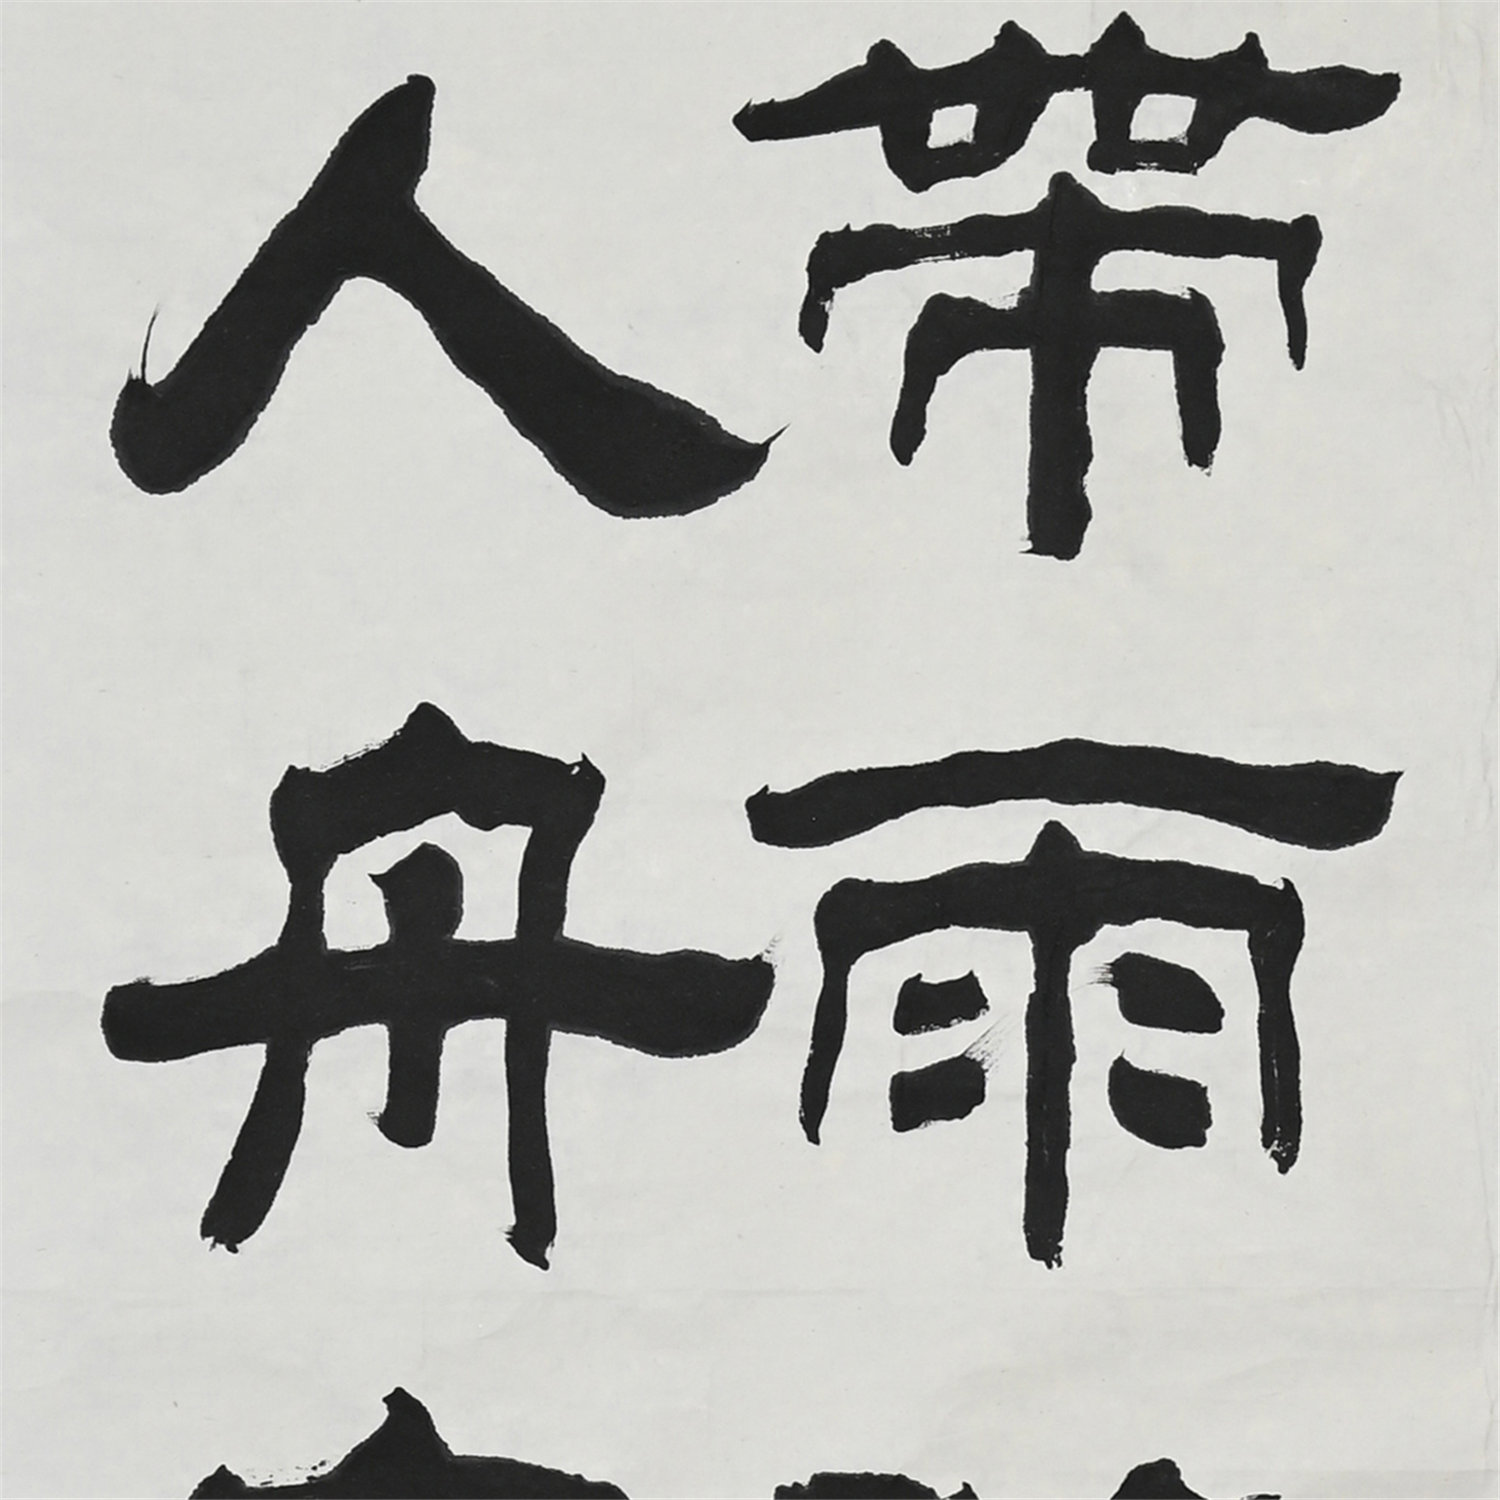 帶雨
人舟